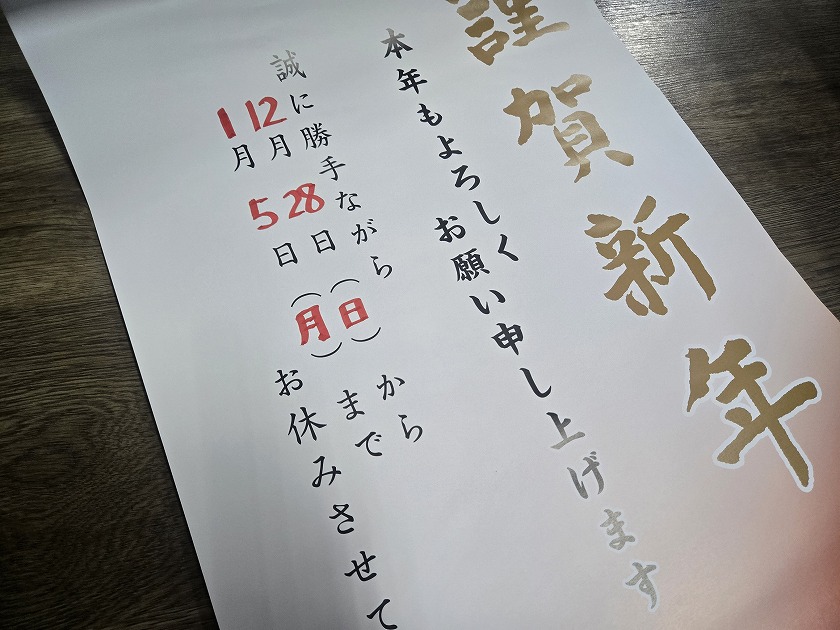 謹賀新年
本年もよろしく
お願い申し上げます
誠に勝手ながら
12月28日(日)から
1月5日(月)まで
お休みさせて